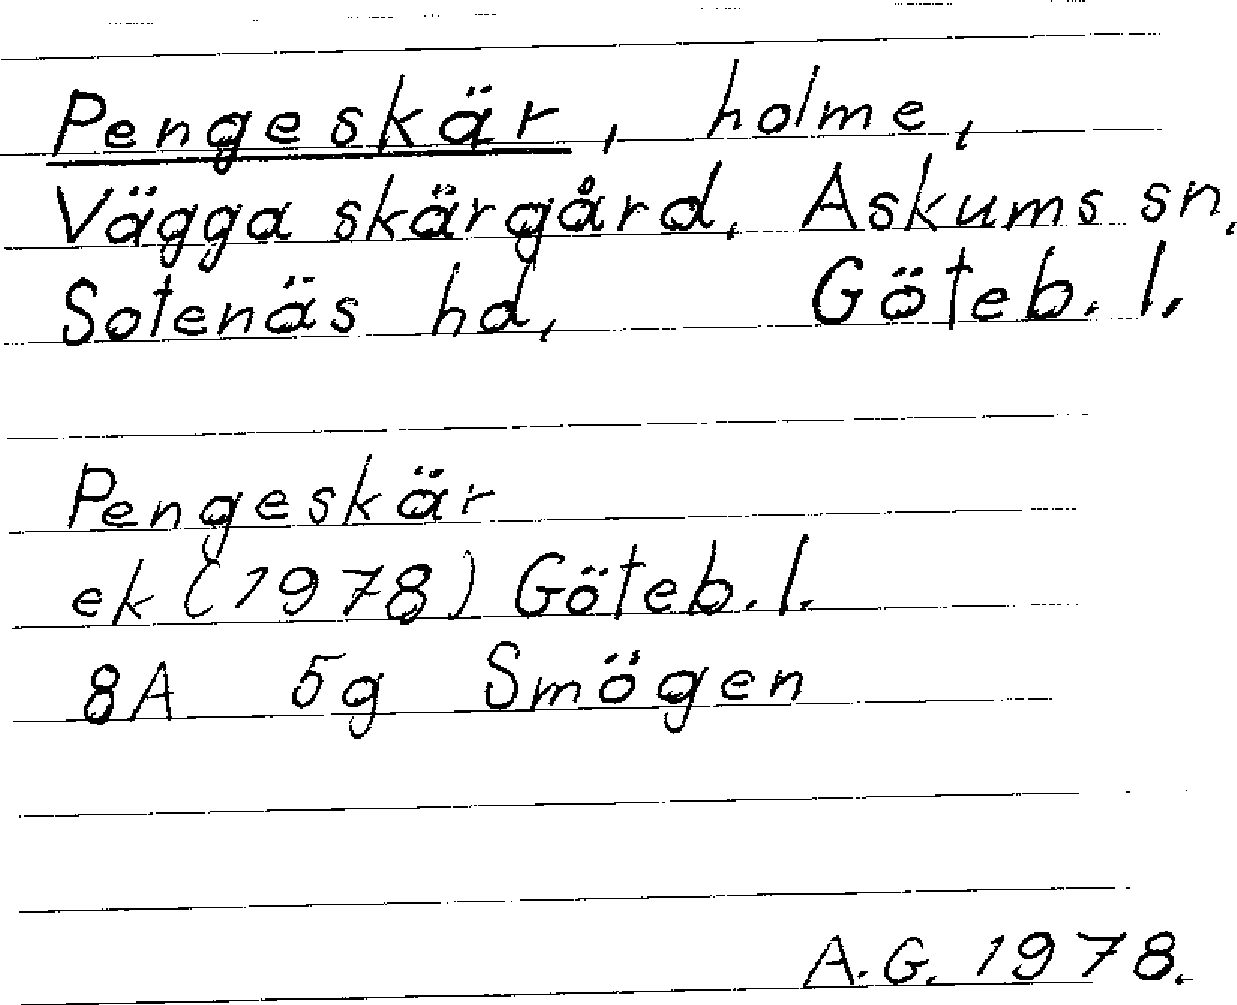 Pengeskär, holme,
Vägga skärgård, Askums sn,
Sotenäs hd, Göteb. l.
Pengeskär
ek (1978) Göteb. l.
8A 5g Smögen
A.G. 1978.